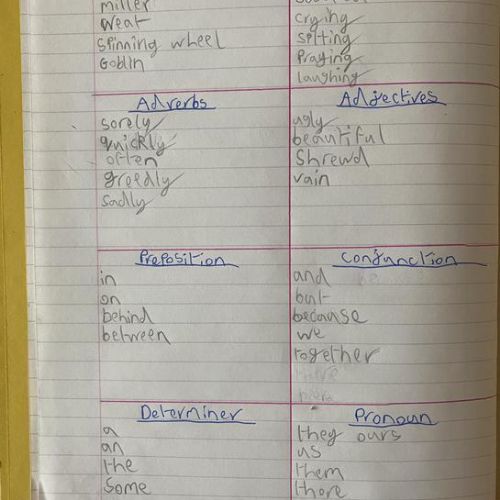 miller
Weat
Spinning wheel
Goblin
crying
spiting
Praying
laughing
Adverbs
sorely
quickly
often
greedly
sadly
Adjectives
ugly
beautiful
Shrewd
vain
Preposition
in
on
behind
between
Conjunction
and
but
because
we
together
Determiner
a
an
the
Some
Pronoun
they ours
us
them